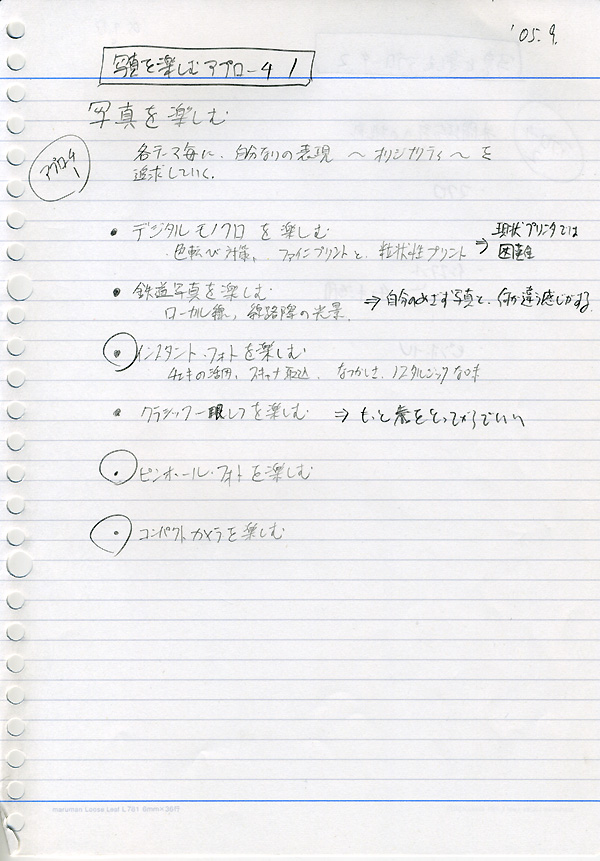 '05.9.
写真を楽しむアプローチ 1
写真を楽しむ
アプローチ1
各テーマ毎に、自分なりの表現 〜オリジナリティ〜を
追求していく。
• デジタルモノクロを楽しむ
色転び対策、ファインプリントと、粒状性プリント ⇒ 現状プリンタでは
困難
• 鉄道写真を楽しむ
ローカル線、線路際の光景、 ⇒ 自分のめざす写真と、何か違う感じがする。
• インスタント・フォトを楽しむ
チェキの活用、スキャナ取込、なつかしさ、ノスタルジックな味
• クラシック一眼レフを楽しむ ⇒ もっと歳をとってからでいい
• ピンホール・フォトを楽しむ
• コンパクトカメラを楽しむ
maruman Loose Leaf L701 6mm×36行